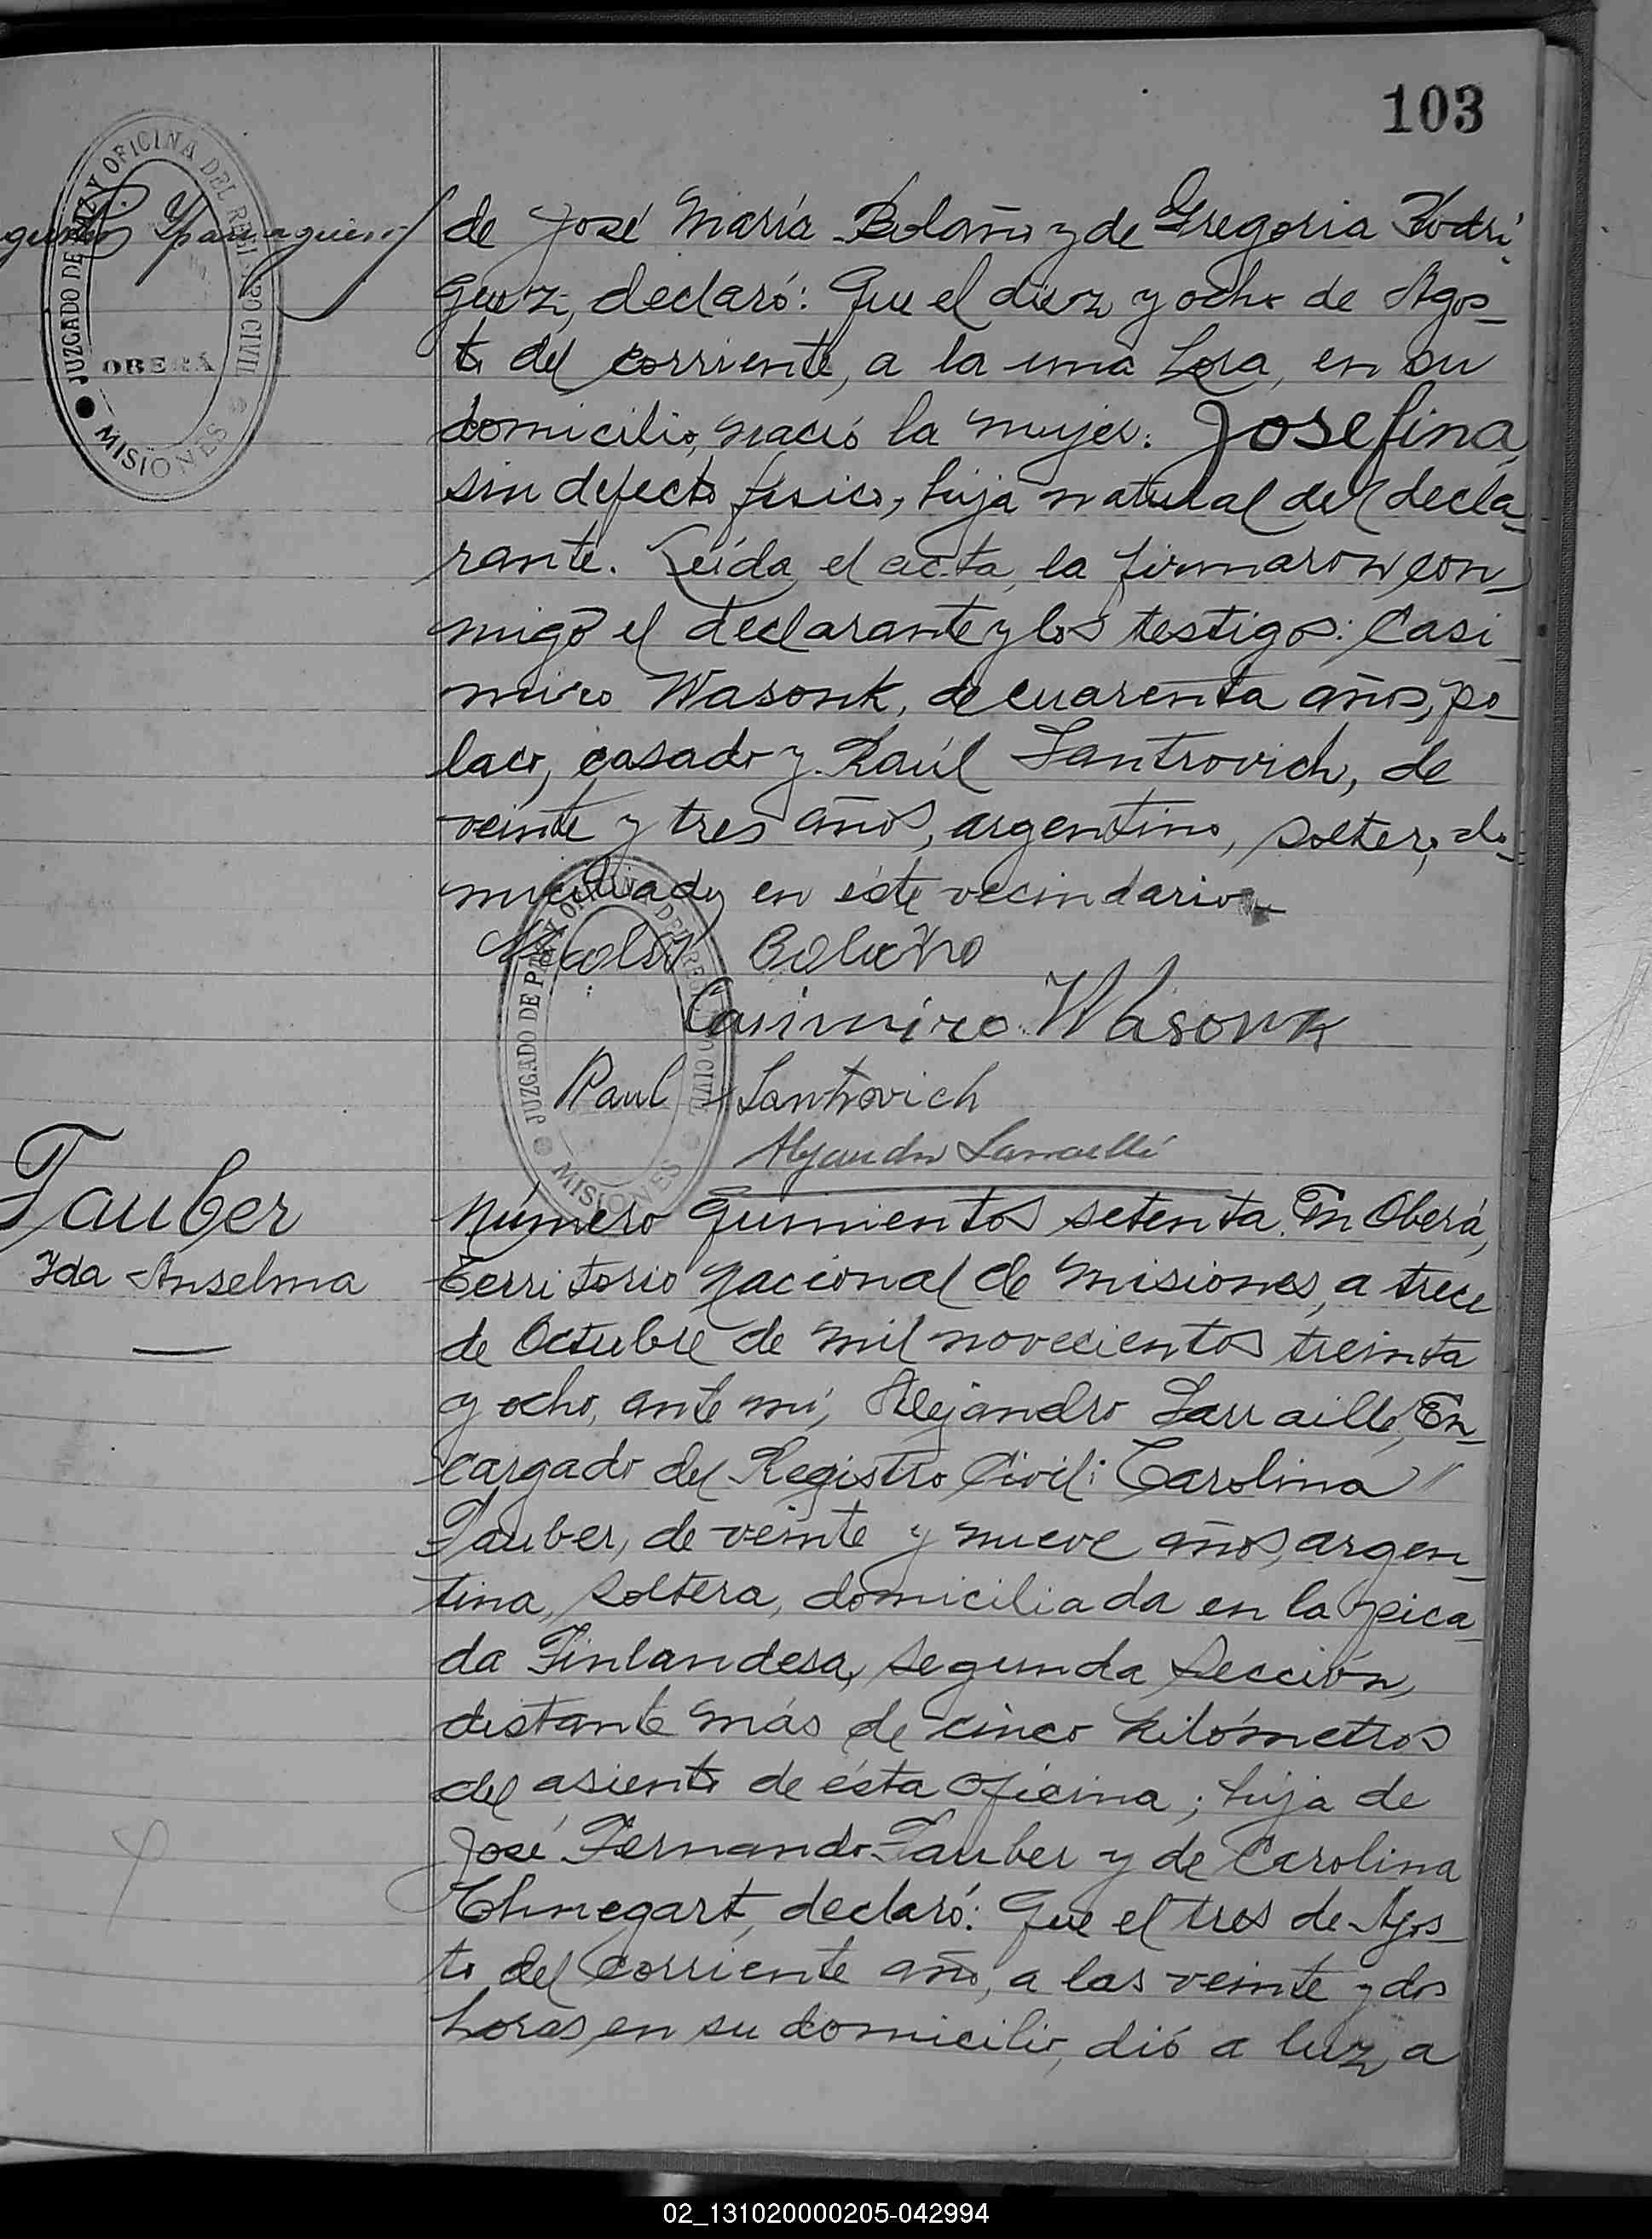 103
JUZGADO DE PAZ Y OFICINA DEL REGISTRO CIVIL
OBERÁ
MISIONES
de José María Bolaño y de Gregoria Rodri
guez, declaró: Que el diez y ocho de Agos_
to del corriente, a la una hora, en su
domicilio, nació la mujer: Josefina,
sin defecto físico, hija natural del decla_
rante. Leída el acta, la firmaron con
migo el declarante y los testigos: Casi_
miro Wasonk, de cuarenta años, po_
laco, casado y Raúl Santrovich, de
veinte y tres años, argentino, soltero, do_
miciliados en éste vecindario
Bolaño
Casimiro Wasonk
Raul Santrovich
Alejandro Larraillé
JUZGADO DE PAZ Y OFICINA DEL REGISTRO CIVIL
MISIONES
Tauber
Ida Anselma
Número quinientos setenta. En Oberá,
Territorio Nacional de Misiones, a trece
de Octubre de mil novecientos treinta
y ocho, ante mí, Alejandro Larraillé, En_
cargado del Registro Civil: Carolina
Tauber, de veinte y nueve años, argen_
tina, soltera, domiciliada en la pica_
da Finlandesa, segunda Sección,
distante más de cinco kilómetros
del asiento de ésta Oficina; hija de
José Fernando Tauber y de Carolina
Ehnegart, declaró: Que el tres de Agos_
to del corriente año, a las veinte y dos
horas, en su domicilio, dió a luz, a
02_131020000205-042994